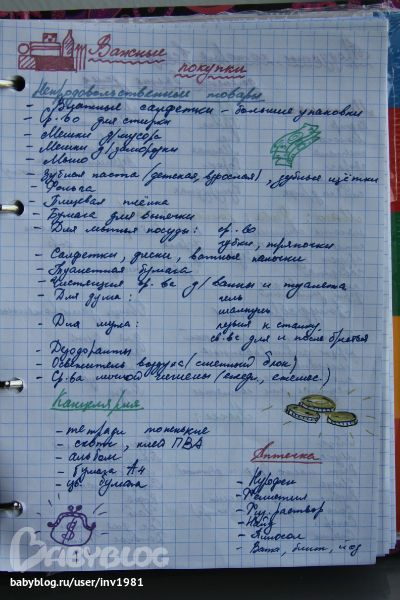 Важные
покупки
Непродовольственные товары
- Влажные салфетки - большие упаковки
- Ср.-во для стирки
- Мешки д/мусора
- Мешки д/заморозки
- Мыло
- Зубная паста (детская, взрослая), зубные щётки
- Фольга
- Пищевая плёнка
- Бумага для выпечки
- Для мытья посуды: ср.-во
губки, тряпочки
- Салфетки, диски, ватные палочки
- Туалетная бумага
- Чистящие ср.-ва д/ванны и туалета
- Для душа: гель
шампунь
- Для мужа: лезвия к станку
ср.-ва для и после бритья
- Дезодоранты
- Освежитель воздуха (сменный блок)
- Ср-ва личной гигиены (ежедн., ежемес.)
Канцелярия
- тетради тоненькие
- скотч, клей ПВА
- альбом
- бумага А4
- цв. бумага
Аптечка
- Нурофен
- Фенистил
- Физ. раствор
- Пиносол
- Вата, бинт, йод
BABYBLOG
babyblog.ru/user/inv1981